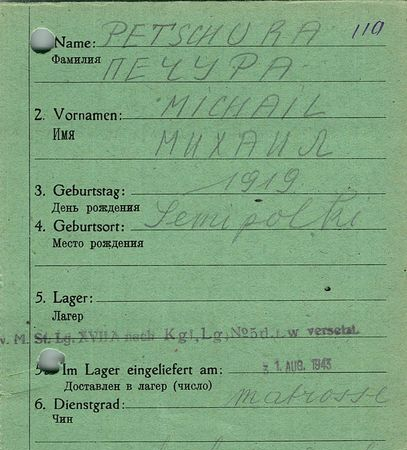 Name: PETSCHURA 110
Фамилия ПЕЧУРА
2. Vornamen: MICHAIL
Имя МИХАИЛ
3. Geburtstag: 1919
День рождения
4. Geburtsort: Semipolki
Место рождения
5. Lager:
Лагер
v. M. St. Lg. XVII A nach Kgf. Lg. №5 d. L w versetzt
Im Lager eingeliefert am: 31. AUG. 1943
Доставлен в лагер (число)
6. Dienstgrad: matrosse
Чин